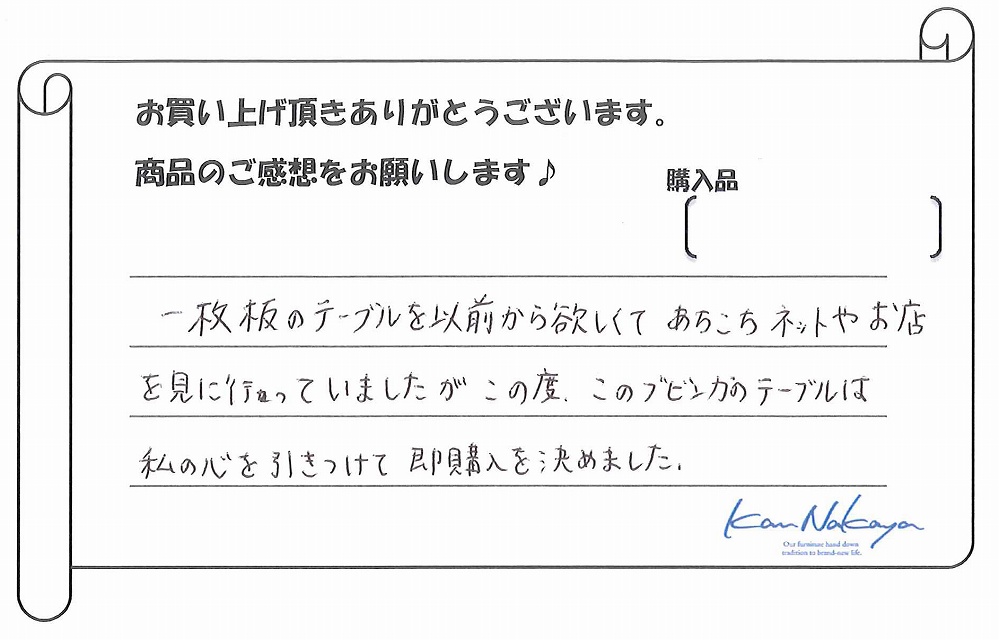 お買い上げ頂きありがとうございます。
商品のご感想をお願いします♪
購入品
一枚板のテーブルを以前から欲しくて あちこち ネットや お店
を見に行っていましたが この度、このブビンガのテーブルは
私の心を引きつけて 即購入を決めました。
Kan Nakaya
Our furniture hand down
tradition to brand-new life.